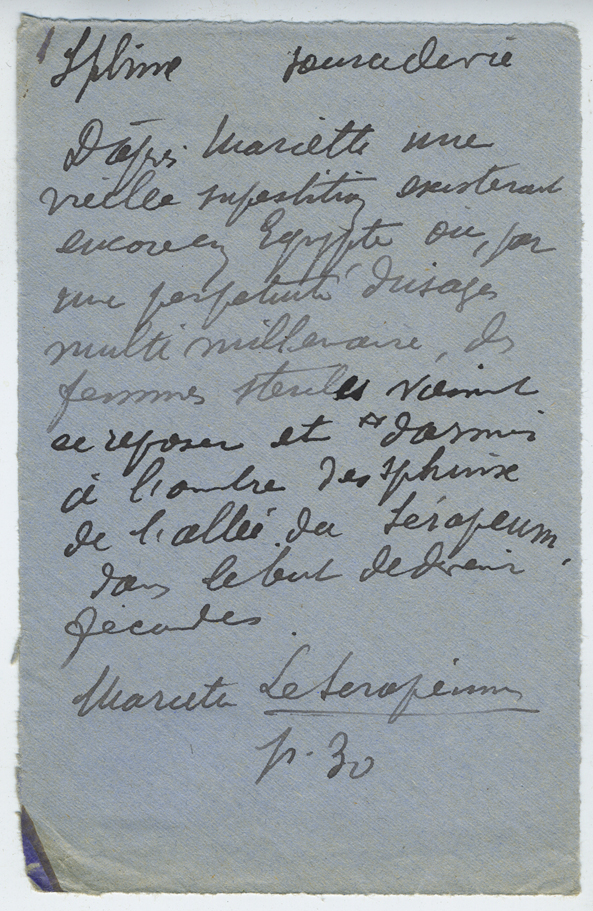 Sphinx source de vie
D'après Mariette une
vieille superstition existerait
encore en Egypte où, par
une perpétuité d'usages
multi millenaire, des
femmes steriles vienent
se reposer et dormir
à l'ombre des sphinx
de l'allée du Sérapeum
dans le but de devenir
fécondes.
Mariette Le Serapéum
p. 30